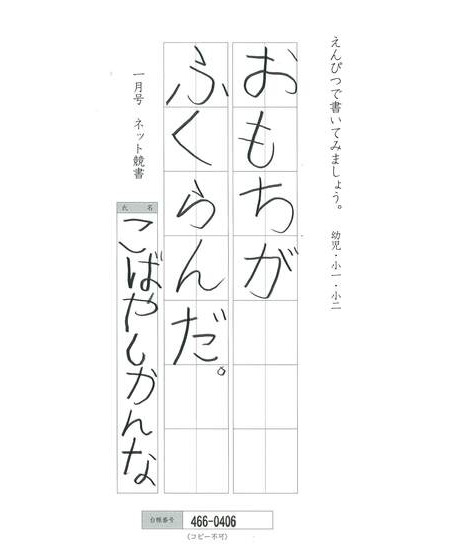 えんぴつで書いてみましょう。 幼児・小一・小二
おもちが
ふくらんだ。
一月号 ネット競書
氏名
こばやしかんな
台帳番号 466-0406
(コピー不可)